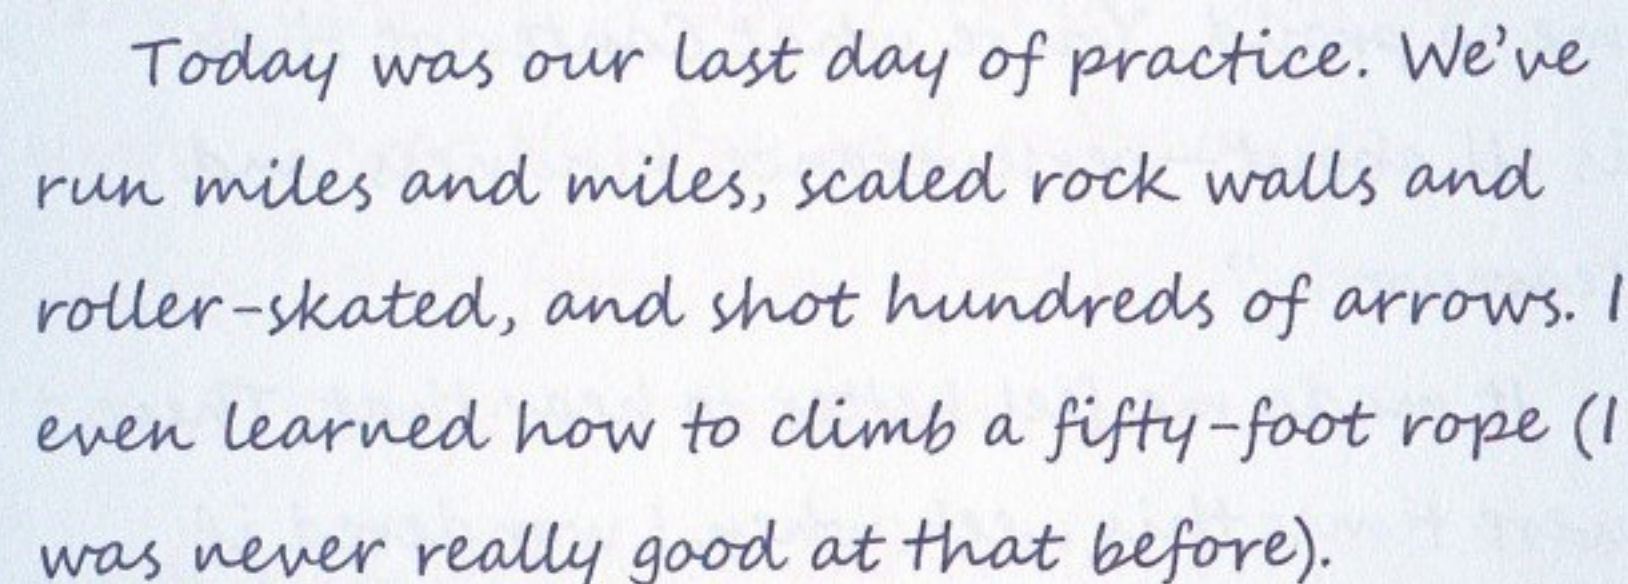 Today was our last day of practice. We've
run miles and miles, scaled rock walls and
roller-skated, and shot hundreds of arrows. I
even learned how to climb a fifty-foot rope (I
was never really good at that before).